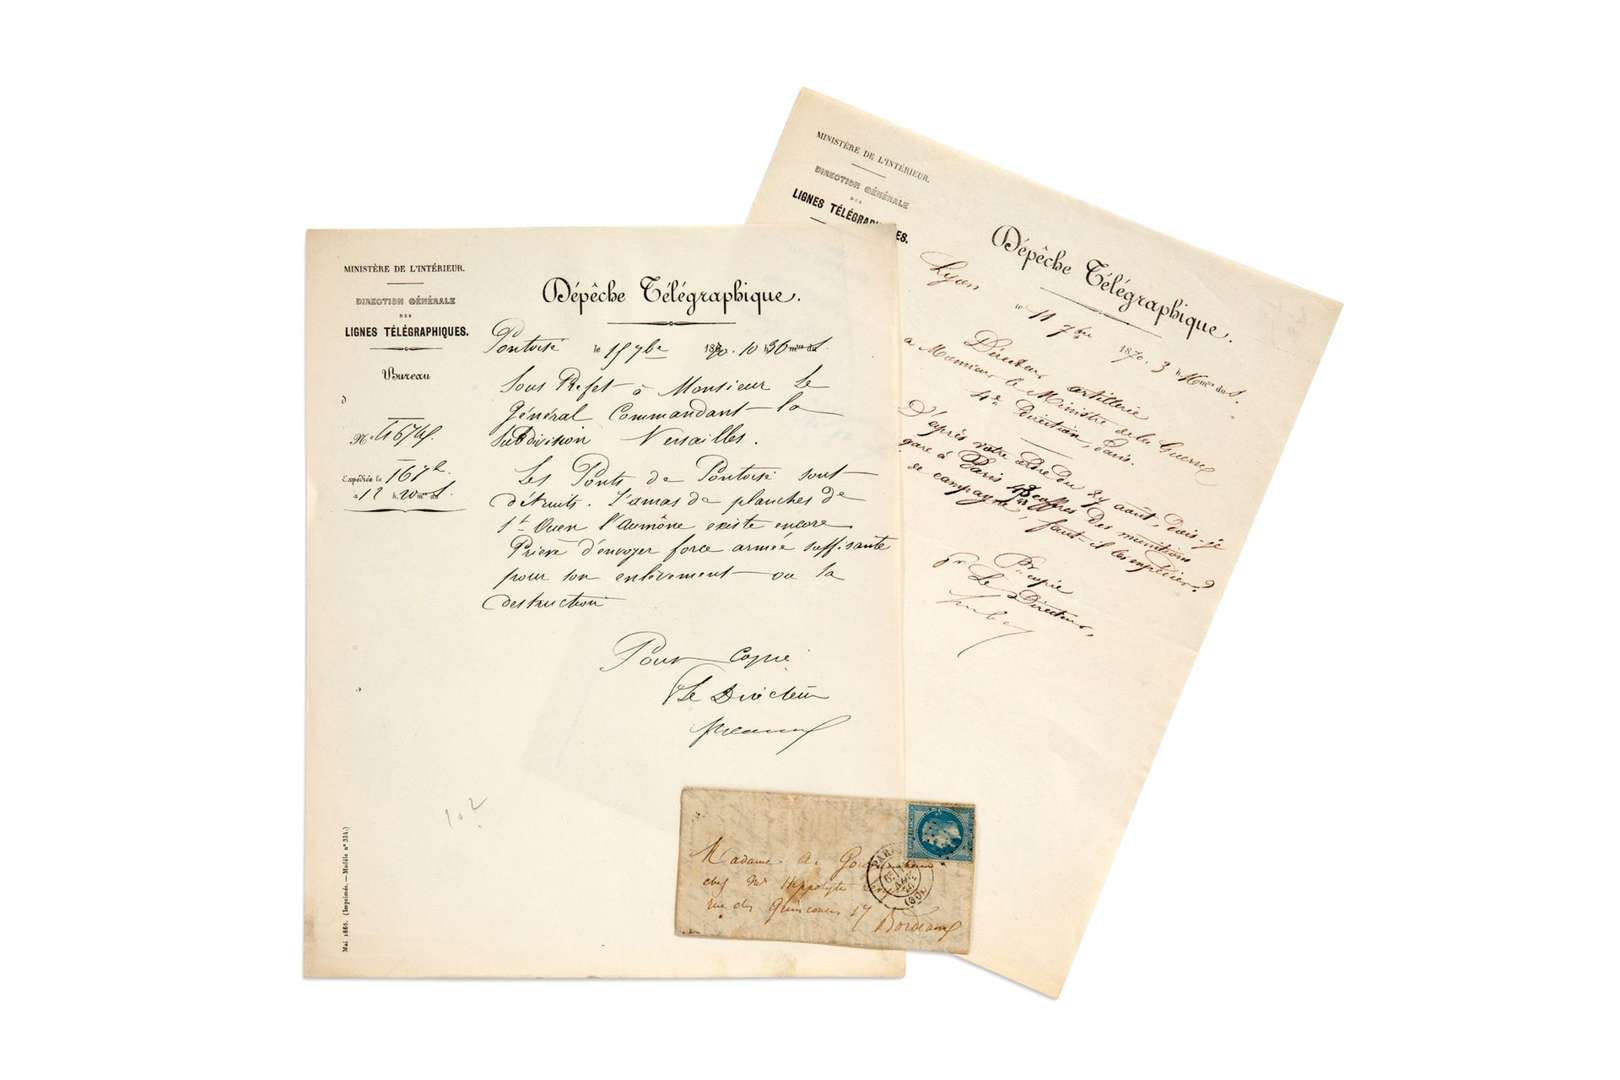 MINISTÈRE DE L'INTÉRIEUR.
DIRECTION GÉNÉRALE
DES
LIGNES TÉLÉGRAPHIQUES.
Bureau
d
N°
Expédiée le
à 12 h. 20 m. du S.
Dépêche Télégraphique.
Pontoise le 15 7bre 1870. 10 h 36 mn du S.
Sous Préfet à Monsieur Le
Général Commandant la
Subdivision Versailles.
Les Ponts de Pontoise sont
détruits. L'amas de planches de
St. Ouen l'Aumône existe encore
Prière d'envoyer force armée suffisante
pour son enlèvement ou la
destruction
Pour Copie
Le Directeur
102
Mai 1866. (Imprimés. — Modèle n° 314.)
MINISTÈRE DE L'INTÉRIEUR.
DIRECTION GÉNÉRALE
DES
LIGNES TÉLÉGRAPHIQUES.
Dépêche Télégraphique.
Lyon
le 11 7bre 1870. 3 h mn du S.
Directeur artillerie
a Monsieur le Ministre de la Guerre
4e Direction, Paris.
D'après votre ordre du 27 août, dois-je
gare à Paris des munitions
de campagne, faut-il les expédier?
Pr copie
Pr Le Directeur,
Madame A.
chez Mr Hippolyte
rue des Quinconces 17
Bordeaux
PARIS
(60)